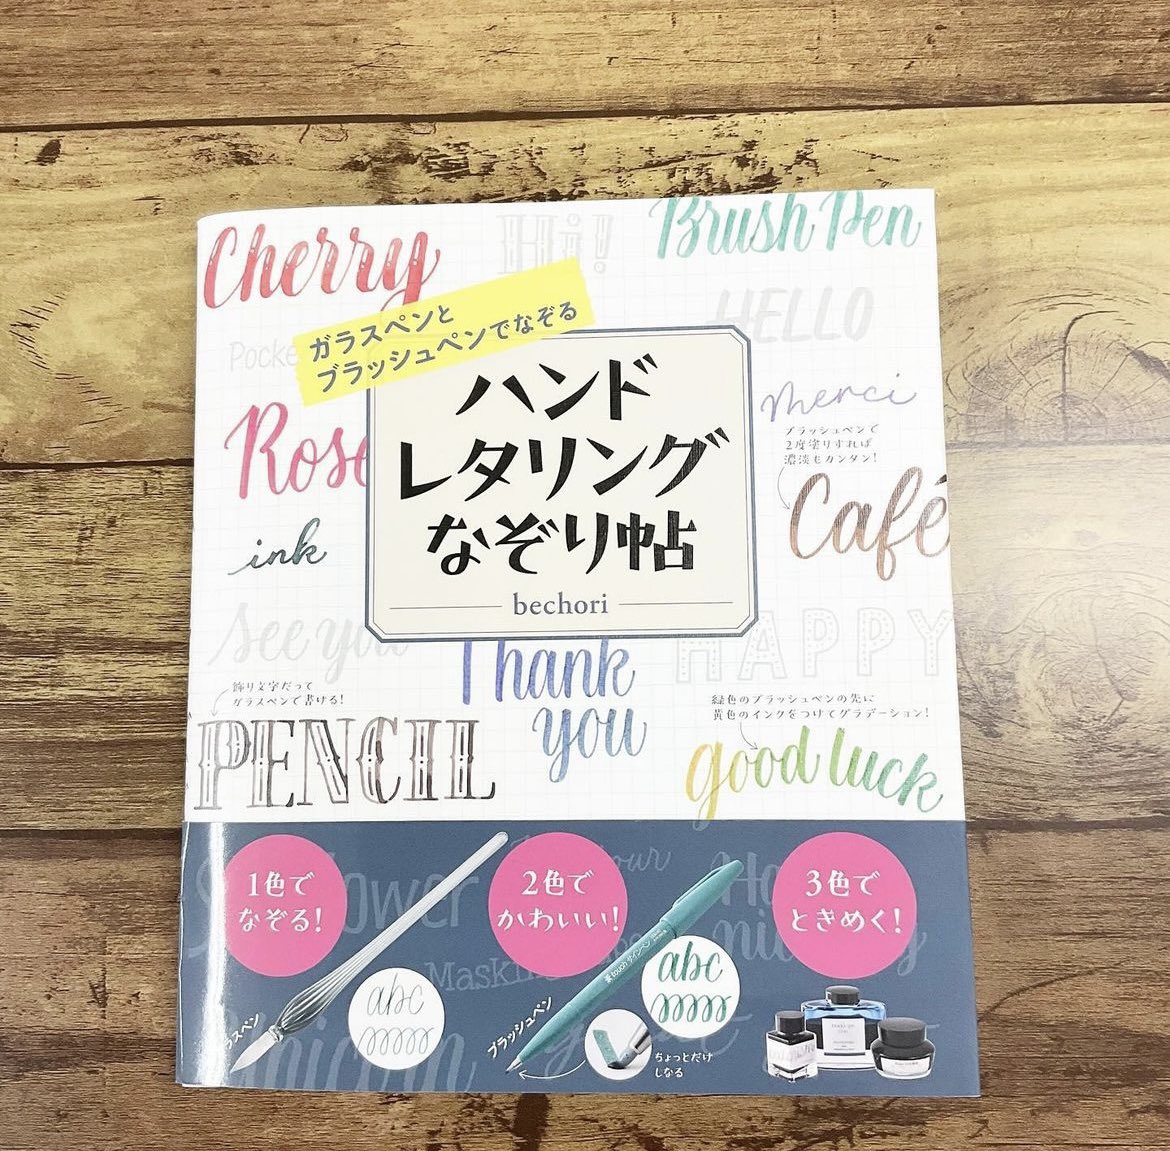 Cherry
Hi!
Brush Pen
HELLO
ガラスペンと
ブラッシュペンでなぞる
ハンド
レタリング
なぞり帖
bechori
merci
ブラッシュペンで
2度塗りすれば
濃淡もカンタン!
Café
ink
HAPPY
Thank
you
飾り文字だって
ガラスペンで書ける!
PENCIL
緑色のブラッシュペンの先に
黄色のインクをつけてグラデーション!
good luck
1色で
なぞる!
2色で
かわいい!
3色で
ときめく!
abc
abc
ブラッシュペン
ちょっとだけ
しなる